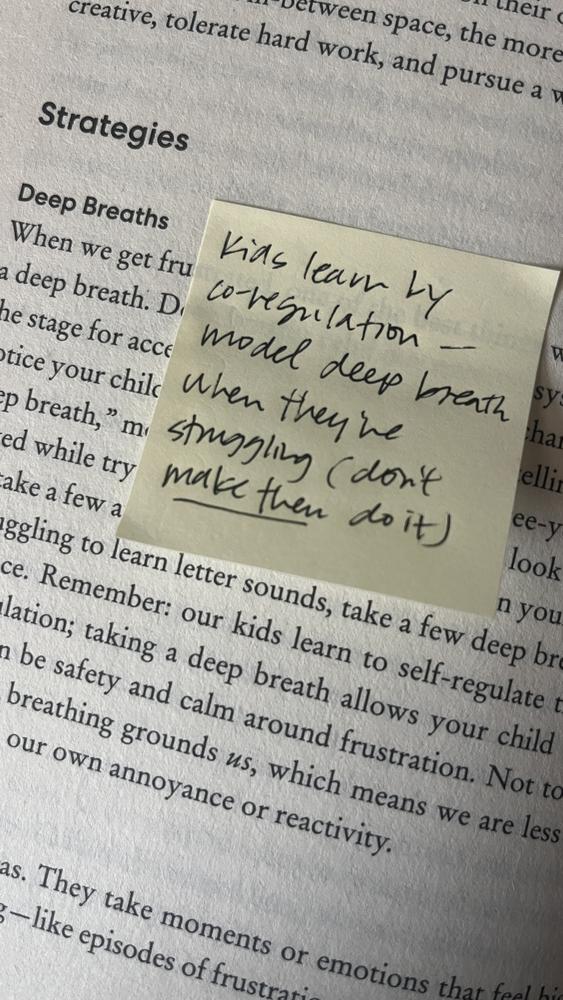 their
-between space, the more
creative, tolerate hard work, and pursue a w
Strategies
Deep Breaths
When we get fru
a deep breath. D
he stage for acce
otice your chilc
ep breath,” m
ed while try
take a few a
Kids learn by
co-regulation —
model deep breath
when they're
struggling (don't
make them do it)
w
sys
chan
ellin
ee-y
look
n you
uggling to learn letter sounds, take a few deep bre
ce. Remember: our kids learn to self-regulate t
ulation; taking a deep breath allows your child
n be safety and calm around frustration. Not to
breathing grounds us, which means we are less
our own annoyance or reactivity.
as. They take moments or emotions that feel big
g—like episodes of frustratio